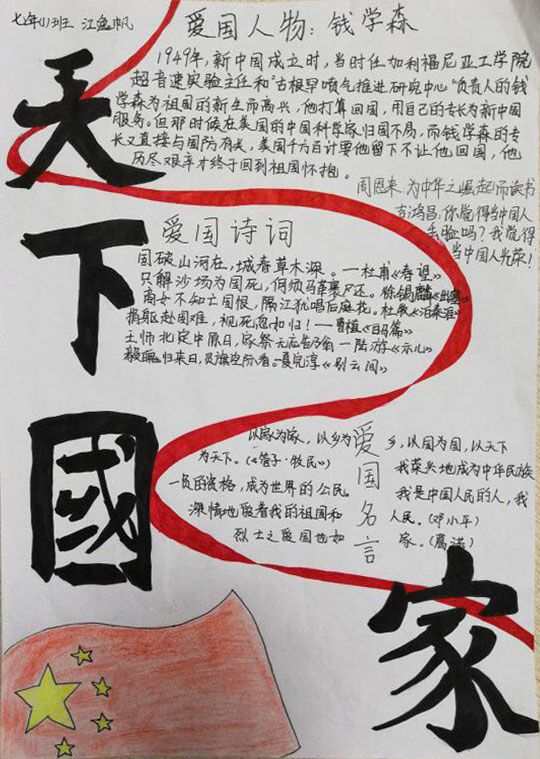 七年11班 江逸帆
爱国人物：钱学森
1949年，新中国成立之时，当时任加利福尼亚工学院
超音速实验主任和"古根罕喷气推进研究中心"负责人的钱
学森为祖国的新生而高兴，他打算回国，用自己的专长为新中国
服务。但那时候在美国的中国科学家归国不易，而钱学森的专
长又直接与国防有关，美国千方百计要他留下不让他回国，他
历尽艰辛才终于回到祖国怀抱。
周恩来：为中华之崛起而读书
吉鸿昌：你觉得当中国人
丢脸吗？我觉得
当中国人光荣！
爱国诗词
国破山河在，城春草木深。—杜甫《春望》
只解沙场为国死，何须马革裹尸还。徐锡麟《出塞》
商女不知亡国恨，隔江犹唱后庭花。杜牧《泊秦淮》
捐躯赴国难，视死忽如归！—曹植《白马篇》
王师北定中原日，家祭无忘告乃翁—陆游《示儿》
毅魄归来日，灵旗空际看。夏完淳《别云间》
爱国名言
以家为家，以乡为乡，以国为国，以天下
为天下。（《管子·牧民》）我荣兴地成为中华民族
一员的资格，成为世界的公民。我是中国人民的人，我
深情地爱着我的祖国和人民。（邓小平）
烈士之爱国也如家。（葛洪）
天
下
國
家